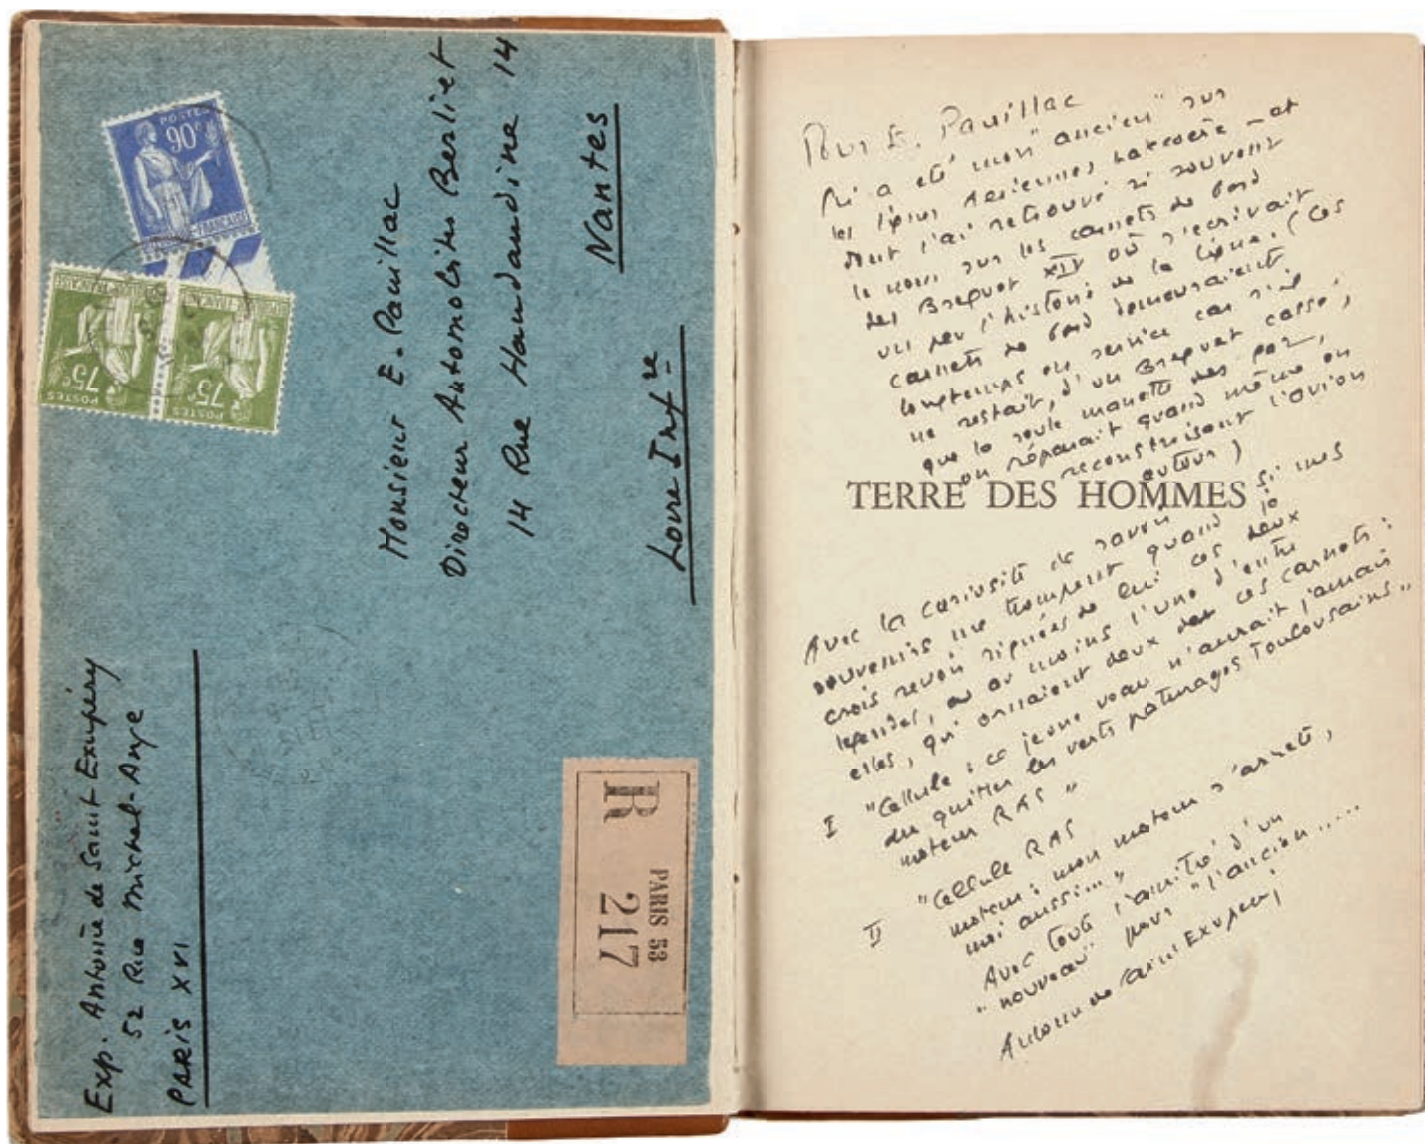 POSTES
90c
POSTES
75c
POSTES
75c
Monsieur E. Pauillac
Directeur Automobiles Berliet
14 Rue Haudaudine 14
Nantes
Loire Infre
Exp. Antoine de Saint Exupéry
52 Rue Michel-Ange
PARIS XVI
R
PARIS 53
217
Pour E. Pauillac
qui a été mon "ancien" sur
les lignes Aériennes Latécoère - et
dont j'ai retrouvé si souvent
le nom sur les carnets de bord
des Breguet XIV où s'écrivait
un peu l'histoire de la ligne. (Ces
carnets de bord demeuraient
longtemps en service car s'il
ne restait, d'un Breguet cassé,
que la seule manette des gaz,
on réparait quand même en
reconstruisant l'avion
autour)
TERRE DES HOMMES
Avec la curiosité de savoir si mes
souvenirs me trompent quand je
crois revoir signées de lui ces deux
légendes, ou au moins l'une d'entre
elles, qui ornaient deux de ces carnets :
I "Cellule : ce jeune veau n'aurait jamais
du quitter les verts paturages Toulousains..
moteur RAS"
II "Cellule RAS
moteur : mon moteur s'arrete,
moi aussi..."
Avec toute l'amitié d'un
"nouveau" pour "l'ancien.....
Antoine de Saint Exupéry